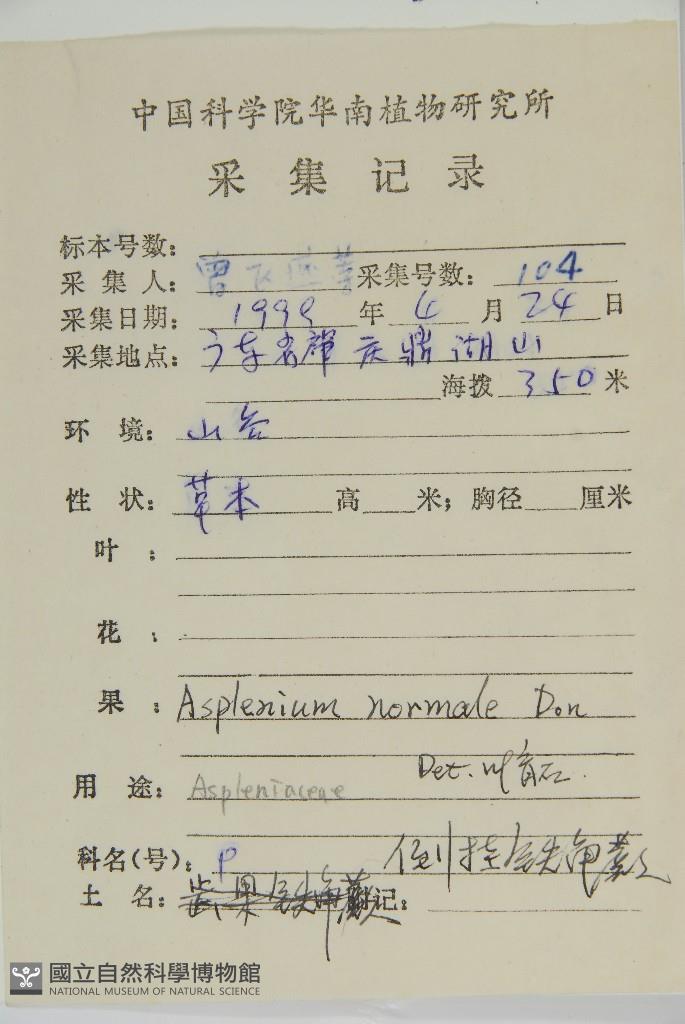 中国科学院华南植物研究所
采集记录
标本号数：
采集人：曾飞燕等 采集号数：104
采集日期：1999年4月24日
采集地点：广东省肇庆鼎湖山
海拨 350 米
环境：山谷
性状：草本 高 米；胸径 厘米
叶：
花：
果：Asplenium normale Don
Det.
用途：Aspleniaceae
科名(号)：P 倒挂铁角蕨
土名：铁角蕨 记：
國立自然科學博物館
NATIONAL MUSEUM OF NATURAL SCIENCE